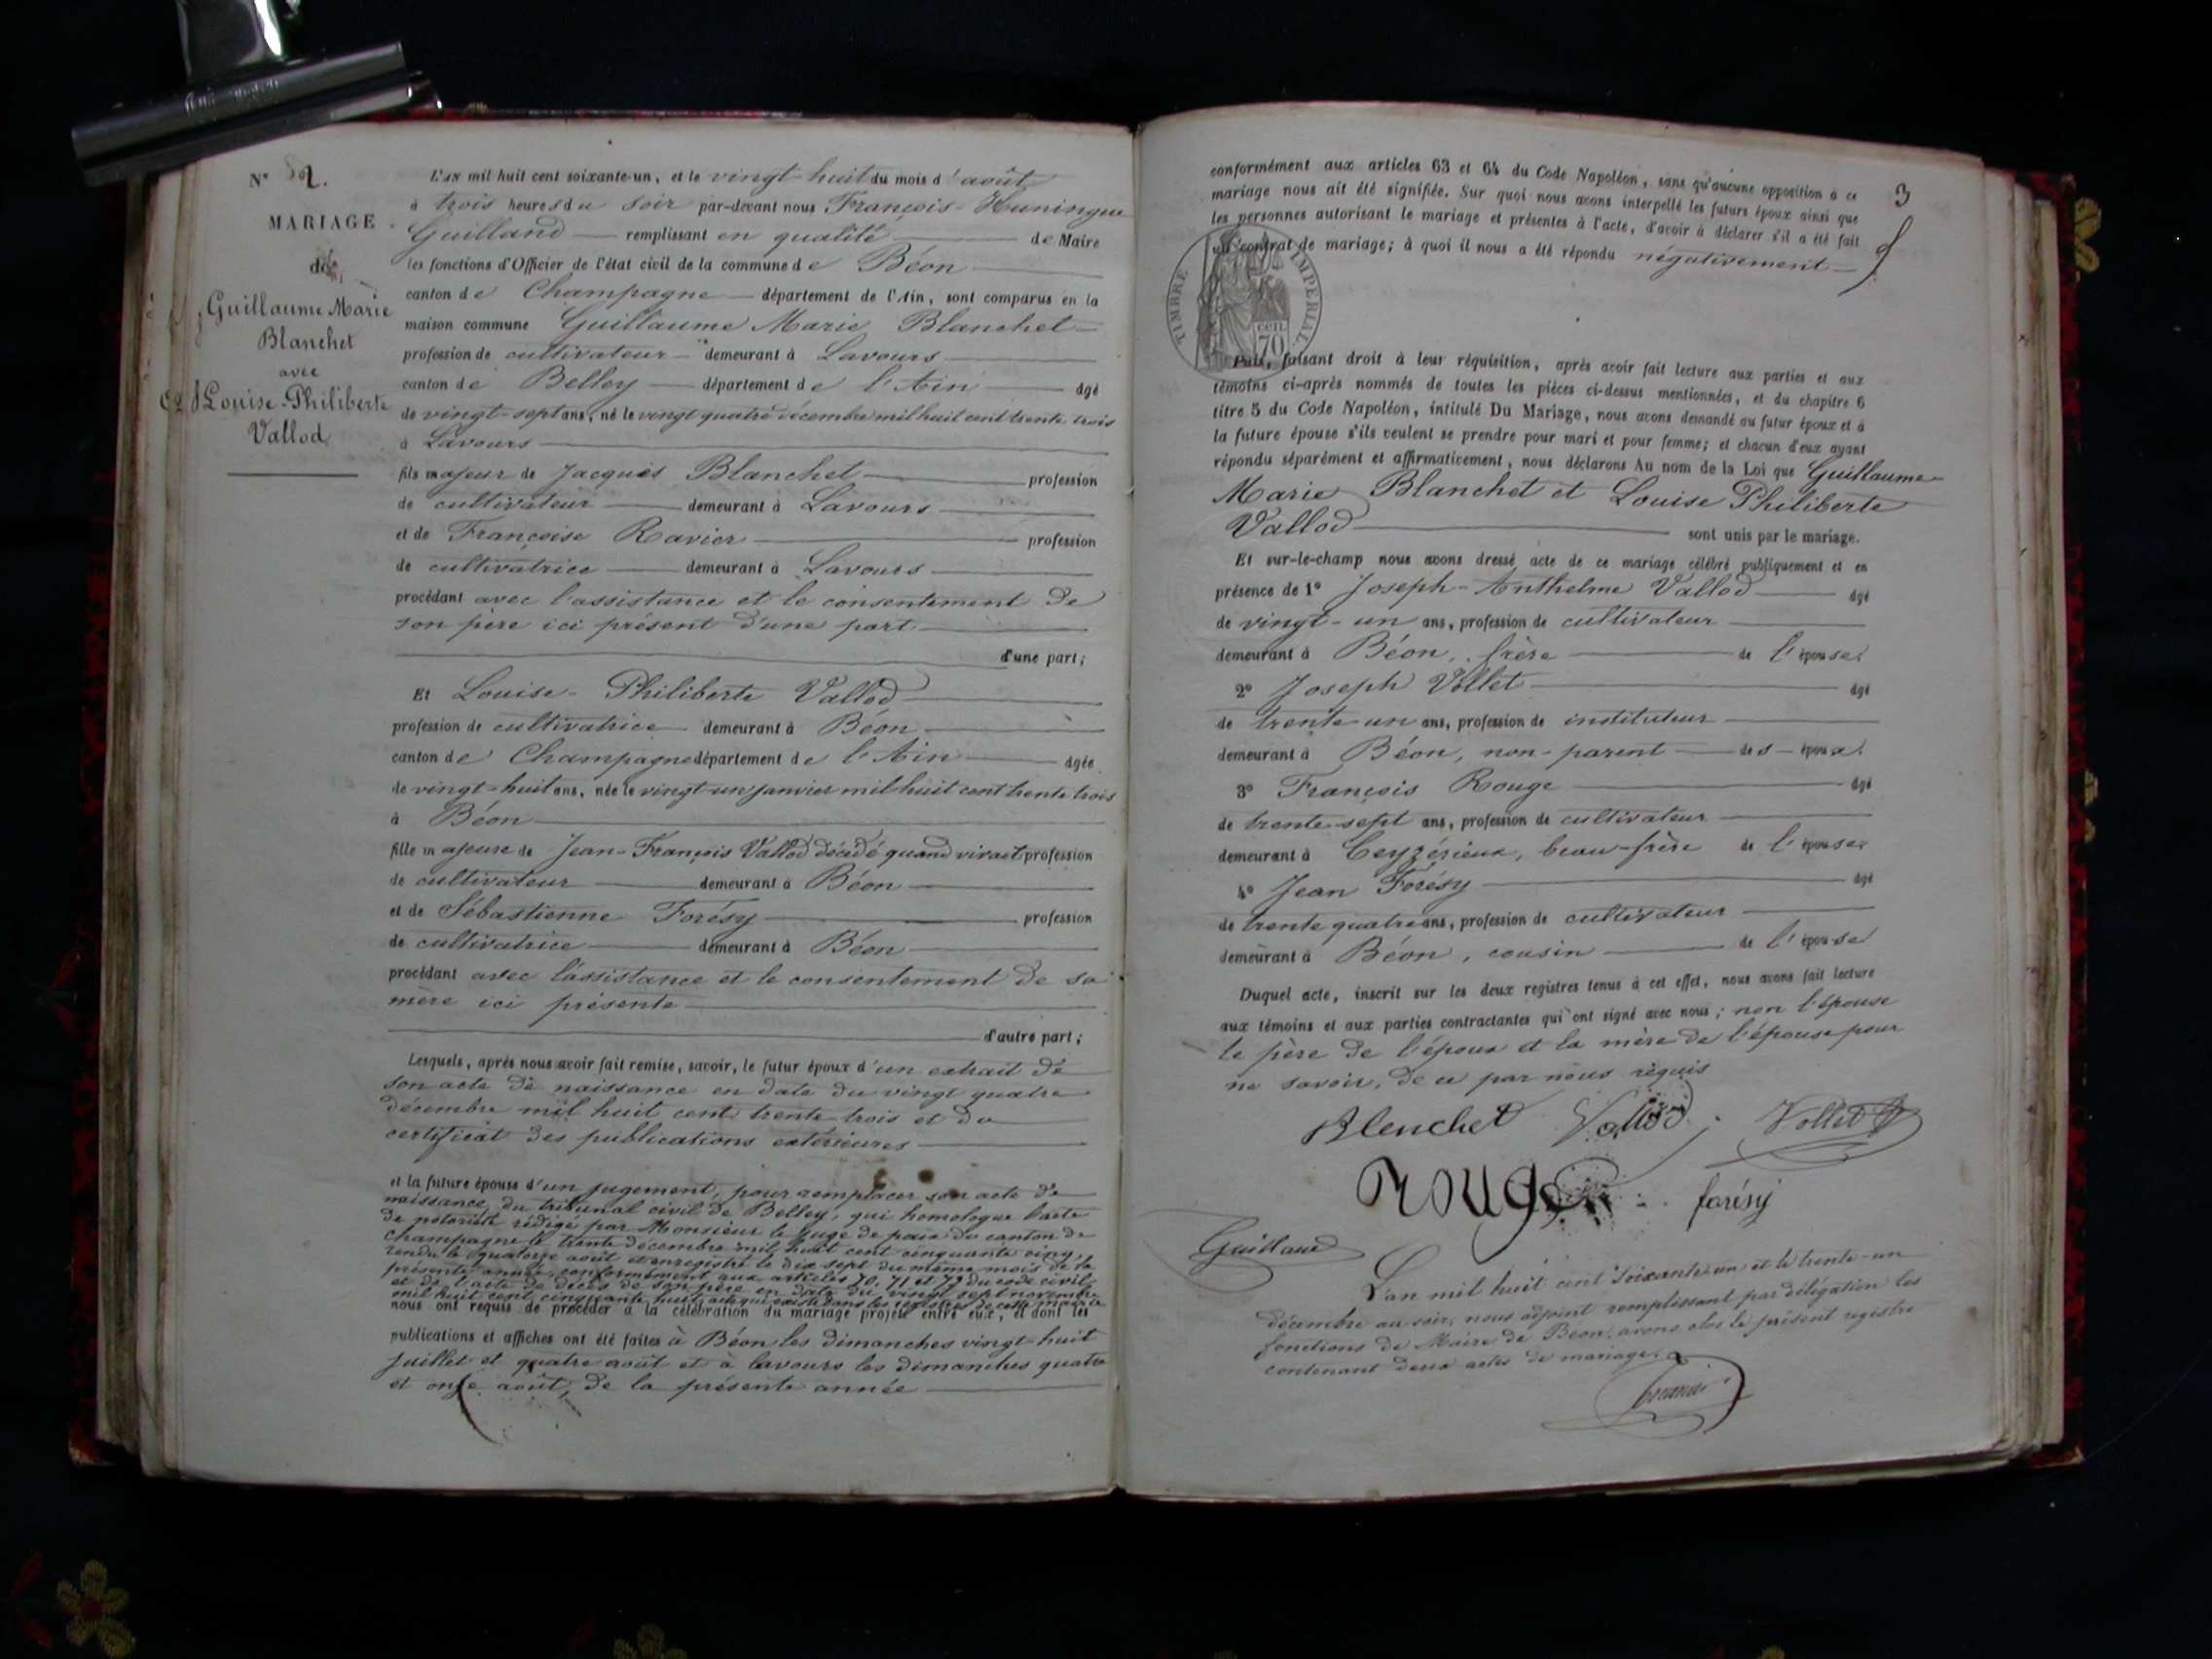 N° 2.
MARIAGE
de
Guillaume Marie
Blanchet
avec
Louise-Philiberte
Vallod
L'AN mil huit cent soixante-un, et le vingt-huit du mois d'août
à trois heures du soir par-devant nous François-Huningue
Guilland remplissant en qualité de Maire
les fonctions d'Officier de l'état civil de la commune de Béon
canton de Champagne département de l'Ain, sont comparus en la
maison commune Guillaume Marie Blanchet
profession de cultivateur demeurant à Lavours
canton de Belley département de l'Ain âgé
de vingt-sept ans, né le vingt quatre décembre mil huit cent trente trois
à Lavours
fils majeur de Jacques Blanchet profession
de cultivateur demeurant à Lavours
et de Françoise Ravier profession
de cultivatrice demeurant à Lavours
procédant avec l'assistance et le consentement de
son père ici présent d'une part
d'une part;
Et Louise-Philiberte Vallod
profession de cultivatrice demeurant à Béon
canton de Champagne département de l'Ain âgée
de vingt-huit ans, née le vingt-un janvier mil huit cent trente trois
à Béon
fille majeure de Jean-François Vallod décédé quand vivait profession
de cultivateur demeurant à Béon
et de Sébastienne Forésy profession
de cultivatrice demeurant à Béon
procédant avec l'assistance et le consentement de sa
mère ici présente
d'autre part;
Lesquels, après nous avoir fait remise, savoir, le futur époux d'un extrait de
son acte de naissance en date du vingt quatre
décembre mil huit cent trente trois et du
certificat des publications extérieures
et la future épouse d'un jugement, pour remplacer son acte de
naissance, du tribunal civil de Belley, qui homologue l'acte
de notoriété rédigé par Monsieur le Juge de paix du canton de
Champagne le trente décembre mil huit cent cinquante cinq,
rendu le quatorze août et enregistré le dix sept du même mois de la
présente année, conformément aux articles 70, 71 et 72 du code civil
et de l'acte de décès de son père en date du vingt sept novembre
mil huit cent cinquante huit, acte qui existe dans les registres de cette mairie
nous ont requis de procéder à la célébration du mariage projeté entre eux, et dont les
publications et affiches ont été faites à Béon les dimanches vingt-huit
juillet et quatre août et à Lavours les dimanches quatre
et onze août, de la présente année
3
conformément aux articles 63 et 64 du Code Napoléon, sans qu'aucune opposition à ce
mariage nous ait été signifiée. Sur quoi nous avons interpellé les futurs époux ainsi que
les personnes autorisant le mariage et présentes à l'acte, d'avoir à déclarer s'il a été fait
un contrat de mariage; à quoi il nous a été répondu négativement
TIMBRE IMPERIAL
cen. 70
Puis, faisant droit à leur réquisition, après avoir fait lecture aux parties et aux
témoins ci-après nommés de toutes les pièces ci-dessus mentionnées, et du chapitre 6
titre 5 du Code Napoléon, intitulé Du Mariage, nous avons demandé au futur époux et à
la future épouse s'ils veulent se prendre pour mari et pour femme; et chacun d'eux ayant
répondu séparément et affirmativement, nous déclarons Au nom de la Loi que Guillaume
Marie Blanchet et Louise Philiberte
Vallod sont unis par le mariage.
Et sur-le-champ nous avons dressé acte de ce mariage célébré publiquement et en
présence de 1° Joseph-Anthelme Vallod âgé
de vingt-un ans, profession de cultivateur
demeurant à Béon, frère de l'épouse
2° Joseph Vollet âgé
de trente-un ans, profession de instituteur
demeurant à Béon, non-parent des époux
3° François Rouge âgé
de trente-sept ans, profession de cultivateur
demeurant à Ceyzérieux, beau-frère de l'épouse
4° Jean Forésy âgé
de trente quatre ans, profession de cultivateur
demeurant à Béon, cousin de l'épouse
Duquel acte, inscrit sur les deux registres tenus à cet effet, nous avons fait lecture
aux témoins et aux parties contractantes qui ont signé avec nous; non l'épouse
le père de l'époux et la mère de l'épouse pour
ne savoir, de ce par nous requis
Blenchet Vallod Vollet
Rouge forésy
Guilland
L'an mil huit cent soixante-un et le trente-un
décembre au soir, nous adjoint remplissant par délégation les
fonctions de Maire de Béon, avons clos le présent registre
contenant deux actes de mariage.